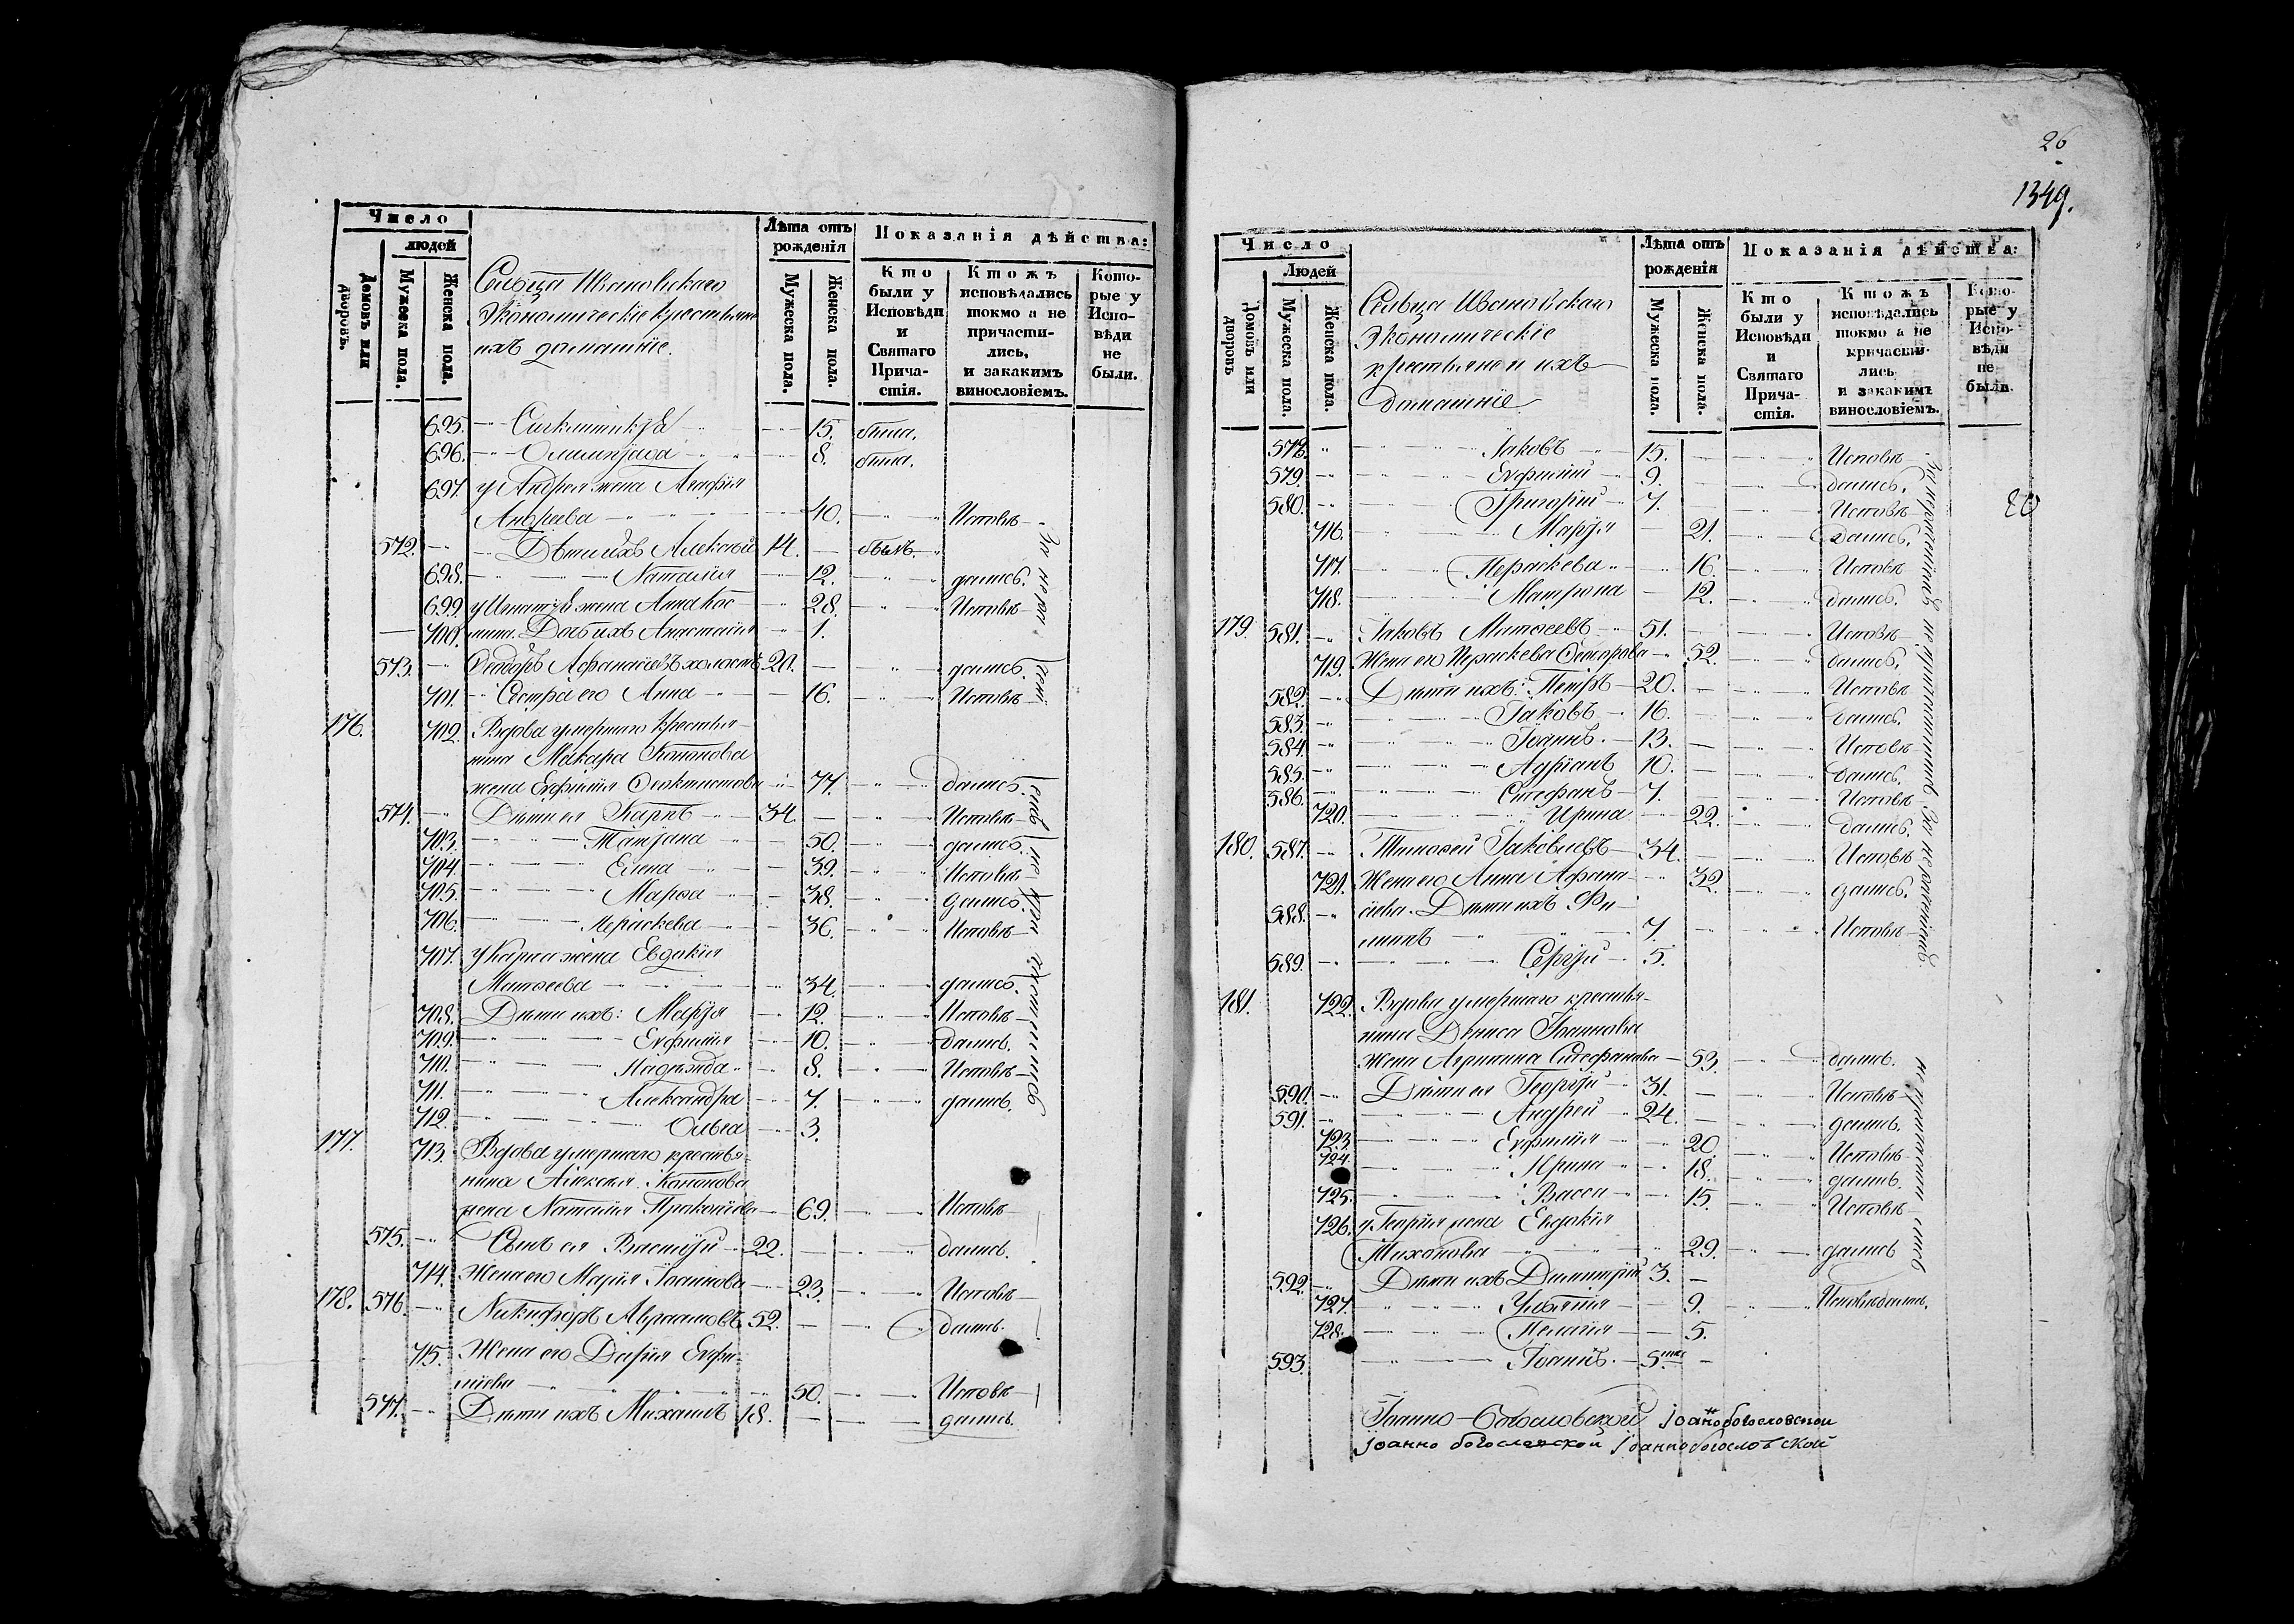 Число
людей
Домовъ или дворовъ.
Мужеска пола.
Женска пола.
Сельца Ивановскаго
Экономическіе крестьяне
ихъ домашніе.
Лѣта отъ рожденія
Мужеска пола.
Женска пола.
Показанія дѣйства:
Кто были у Исповѣди и Святаго Причастія.
Ктожъ исповѣдались токмо а не причастились, и закакимъ винословіемъ.
Которые у Исповѣди не были.
695. 15. была.
696. 8. была.
697. у Андрея жена Агафія
Андреева 40. Исповѣ-
572. Дѣти ихъ Алексѣй 14. былъ.
698. Наталія 12. дались.
699. у Игнатія жена Анна Кос- 28. Исповѣ-
700. мина. Дочь ихъ Анастасія 1.
573. Ѳеодоръ Афанасіевъ холостъ 20. дались.
701. Сестра его Анна 16. Исповѣ-
176. 702. Вдова умершаго крестья-
нина Макара Кононова
жена Евфимія Ѳеоктистова 77. дались.
574. Дѣти ея Карпъ 34. Исповѣ-
703. Татіана 50. дались.
704. Елена 39. Исповѣ-
705. Марѳа 38. дались.
706. Параскева 36. Исповѣ-
707. у Карпа жена Евдокія
Матѳеева 34. дались.
708. Дѣти ихъ: Марія 12. Исповѣ-
709. Евфимія 10. дались.
710. Надежда 8. Исповѣ-
711. Александра 7. дались.
712. Ольга 3.
177. 713. Вдова умершаго крестья-
нина Алексѣя Кононова
жена Наталія Прокопіева 69. Исповѣ-
575. Сынъ ея Василій 22. дались.
714. Жена его Марія Іоаннова 23. Исповѣ-
178. 576. Никифоръ Авраамовъ 52. дались.
715. Жена его Дарія Евфи-
міева 50. Исповѣ-
577. Дѣти ихъ Михаилъ 18. дались.
26
1349.
Число
Людей
Домовъ или дворовъ
Мужеска пола.
Женска пола.
Сельца Ивановскаго
Экономическіе
крестьяне и ихъ
домашніе
Лѣта отъ рожденія
Мужеска пола.
Женска пола.
Показанія дѣйства:
Кто были у Исповѣди и Святаго Причастія.
Ктожъ исповѣдались токмо а не причастились и закакимъ винословіемъ.
Которые у Исповѣди не были.
578. Іаковъ 15. Исповѣ
579. Евфимій 9. дались.
580. Григорій 7. Исповѣ
716. Марія 21. дались.
717. Параскева 16. Исповѣ
718. Матрона 12. дались.
179. 581. Іаковъ Матѳеевъ 51. Исповѣ-
719. Жена его Параскева Ѳеодорова 52. дались.
582. Дѣти ихъ: Петръ 20. Исповѣ
583. Іаковъ 16. дались.
584. Іоаннъ 13. Исповѣ
585. Адріанъ 10. дались.
586. Стефанъ 7. Исповѣ
720. Ирина 22. дались.
180. 587. Тимоѳей Іаковлевъ 34. Исповѣ
721. Жена его Анна Афана- 32. дались.
588. сіева. Дѣти ихъ Фи-
липъ 7. Исповѣ-
589. Сергій 5.
181. 722. Вдова умершаго крестья-
нина Дениса Іоаннова
жена Агрипина Стефанова 53. дались.
590. Дѣти ея Георгій 31. Исповѣ-
591. Андрей 24. дались.
723. Евфимія 20. Исповѣ-
724. Ирина 18. дались.
725. Васса 15. Исповѣ-
726. у Георгія жена Евдокія
29. дались
592. Дѣти ихъ Димитрій 3.
727. Уліянія 9. Исповѣдались.
728. Пелагія 5.
593. Іоаннъ. 5
Іоанно-Богословской Іоанно богословской
Іоанно богословской Іоанно богословской